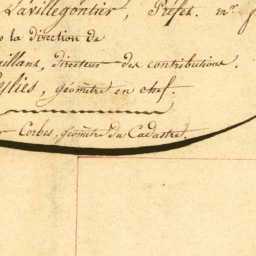 Lavillegontier, Préfet. Mr
la direction de
directeur des contributions.
géomètre en chef.
Corbes, géomètre du Cadastre.